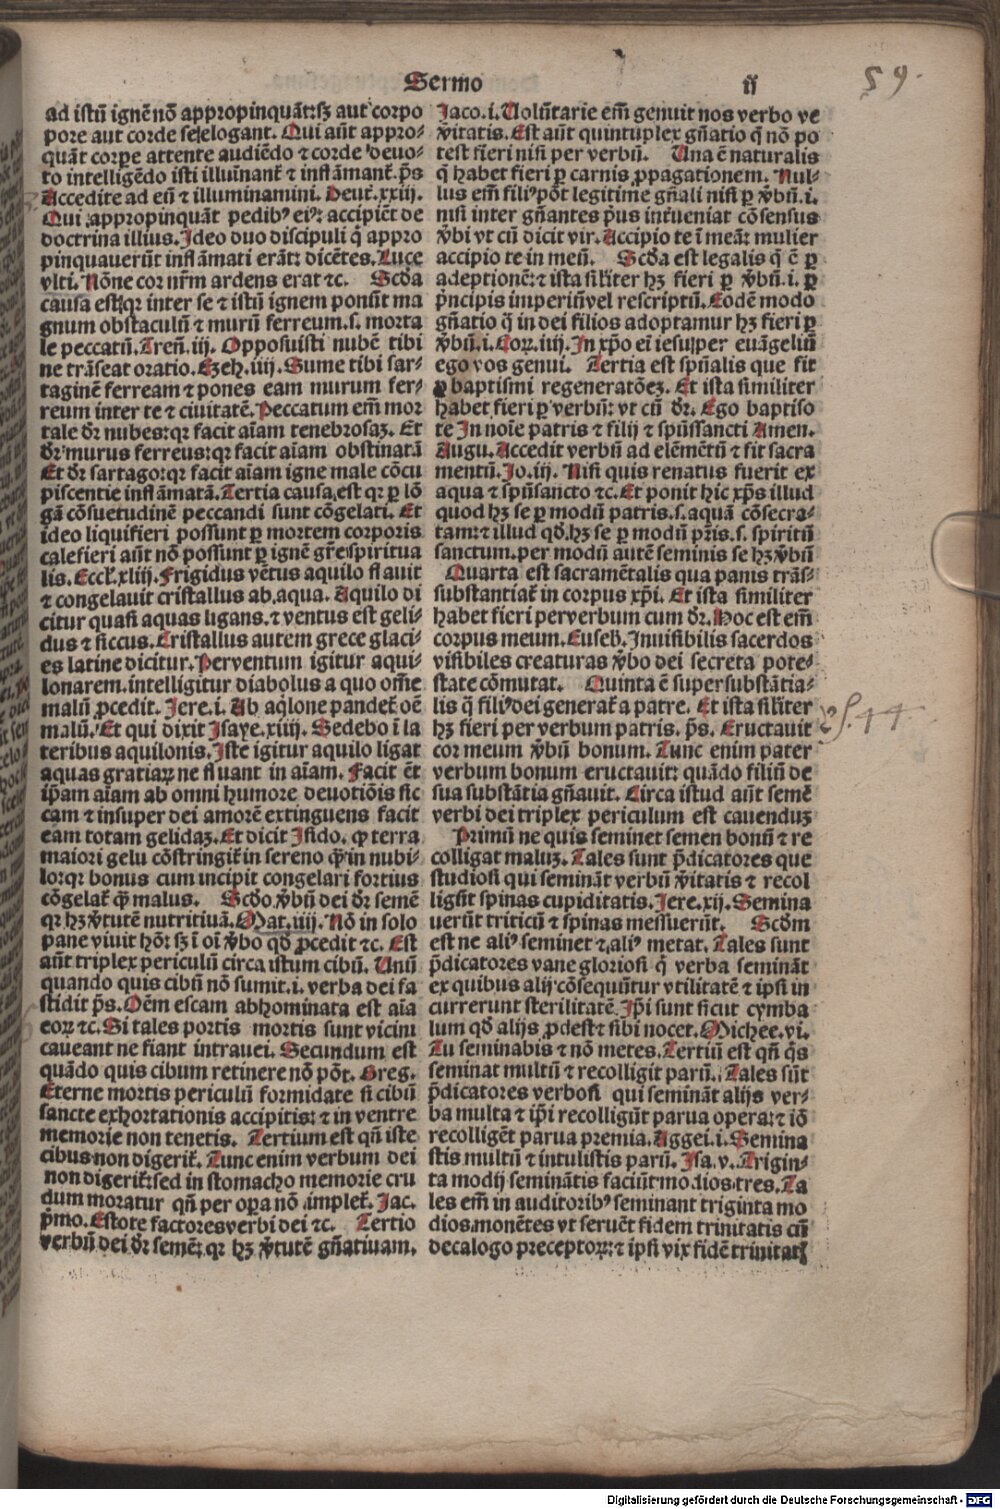 Sermo ij
59.
ad istū ignē nō appropinquāt: sꝫ aut corpo
pore aut corde se elogant. Qui aūt appro-
quāt corpe attente audiēdo ⁊ corde deuo-
to intelligēdo isti illuīnant᷑ ⁊ inflāmant᷑. p̄s
Accedite ad eū ⁊ illuminamini. Deut̄. xxiij.
Qui appropinquāt pedibꝰ eiꝰ: accipiēt de
doctrina illius. Ideo duo discipuli q̇ appro
pinquauerūt inflāmati erāt: dicētes. Luce
vlti. Nōne cor nr̄m ardens erat ⁊c. Scd̄a
causa est: qꝛ inter se ⁊ istū ignem ponūt ma
gnum obstaculū ⁊ murū ferreum. s. morta
le peccatū. Treñ. iij. Opposuisti nubē tibi
ne trāseat oratio. Ezeh̄. iiij. Sume tibi sar-
taginē ferream ⁊ pones eam murum fer-
reum inter te ⁊ ciuitatē. Peccatum em̄ mor
tale dr̄ nubes: qꝛ facit aīam tenebrosaꝫ. Et
dr̄ murus ferreus: qꝛ facit aīam obstinatā
Et dr̄ sartago: qꝛ facit aīam igne male cōcu
piscentie inflāmatā. Tertia causa est qꝛ ꝑ lō
gā cōsuetudinē peccandi sunt cōgelati. Et
ideo liquifieri possunt ꝑ mortem corporis
calefieri aūt nō possunt ꝑ ignē gr̄e spiritua
lis. Eccl̄. xliij. Frigidus vētus aquilo flauit
⁊ congelauit cristallus ab aqua. Aquilo di
citur quasi aquas ligans. ⁊ ventus est geli-
dus ⁊ siccus. Cristallus autem grece glaci-
es latine dicitur. Per ventum igitur aqui-
lonarem. intelligitur diabolus a quo om̄e
malū ꝓcedit. Jere. i. Ab aq̇lone pandet᷑ oē
malū. Et qui dixit Isaye. xiiij. Sedebo ī la
teribus aquilonis. Iste igitur aquilo ligat
aquas gratiaꝝ ne fluant in aīam. Facit ēt
ip̄am aīam ab omni humore deuotiōis sic
cam ⁊ insuper dei amorē extinguens facit
eam totam gelidaꝫ. Et dicit Isido. ꝙ terra
maiori gelu cōstringit᷑ in sereno q̄ in nubi-
lo: qꝛ bonus cum incipit congelari fortius
cōgelat᷑ q̄ malus. Scd̄o v̄bū dei dr̄ semē
qꝛ hꝫ v̄tutē nutritiuā. Mat. iiij. Nō in solo
pane viuit hō: sꝫ ī oī v̄bo qd̄ ꝓcedit ⁊c. Est
aūt triplex periculū circa istum cibū. Unū
quando quis cibū nō sumit. i. verba dei fa
stidit p̄s. Oēm escam abhominata est aīa
eoꝝ ⁊c. Si tales portis mortis sunt vicini
caueant ne fiant intrauei. Secundum est
quādo quis cibum retinere nō pōt. Greg.
Eterne mortis periculū formidate si cibū
sancte exhortationis accipitis: ⁊ in ventre
memorie non tenetis. Tertium est qn̄ iste
cibus non digerit᷑. Tunc enim verbum dei
non digerit᷑: sed in stomacho memorie cru
dum moratur qn̄ per oꝑa nō implet᷑. Jac.
p̄mo. Estote factores verbi dei ⁊c. Tertio
verbū dei dr̄ semē: qꝛ hꝫ v̄tutē gn̄atiuam.
Jaco. i. Uolūtarie em̄ genuit nos verbo ve
v̄itatis. Est aūt quintuplex gn̄atio q̄ nō po
test fieri nisi per verbū. Una ē naturalis
q̄ habet fieri ꝑ carnis ꝓpagationem. Nul-
lus em̄ filiꝰ pōt legitime gn̄ali nisi ꝑ v̄bū. i.
nisi inter gn̄antes p̄us int̄ueniat cōsensus
v̄bi vt cū dicit vir. Accipio te ī meā: mulier
accipio te in meū. Scd̄a est legalis q̄ ē ꝑ
adeptionē: ⁊ ista siliter hꝫ fieri ꝑ v̄bū. i. ꝑ
p̄ncipis imperiū vel rescriptū. Eodē modo
gn̄atio q̄ in dei filios adoptamur hꝫ fieri ꝑ
v̄bū. i. Coꝝ. iiij. In xp̄o em̄ iesu per euāgeliū
ego vos genui. Tertia est spūalis que fit
ꝑ baptismi regeneratōeꝫ. Et ista similiter
habet fieri ꝑ verbū: vt cū dr̄. Ego baptiso
te In noīe patris ⁊ filij ⁊ spūssancti Amen.
Augu. Accedit verbū ad elēmētū ⁊ fit sacra
mentū. Jo. iij. Nisi quis renatus fuerit ex
aqua ⁊ spūsancto ⁊c. Et ponit hic xp̄s illud
quod hꝫ se ꝑ modū patris. s. aquā cōsecra-
tam: ⁊ illud qd̄ hꝫ se ꝑ modū pr̄is. s. spiritū
sanctum. per modū autē seminis se hꝫ v̄bū
Quarta est sacramētalis qua panis trās-
substantiat᷑ in corpus xp̄i. Et ista similiter
habet fieri per verbum cum dr̄. Hoc est em̄
corpus meum. Euseb. Inuisibilis sacerdos
visibiles creaturas v̄bo dei secreta pote-
state cōmutat. Quinta ē supersubstātia-
lis q̄ filiꝰ dei generat᷑ a patre. Et ista siliter
hꝫ fieri per verbum patris. p̄s. Eructauit
cor meum v̄bū bonum. Tunc enim pater
verbum bonum eructauit: quādo filiū de
sua substātia gn̄auit. Circa istud aūt semē
verbi dei triplex periculum est cauenduꝫ
Primū ne quis seminet semen bonū ⁊ re
colligat maluꝫ. Tales sunt p̄dicatores que
studiosi qui semināt verbū v̄itatis ⁊ recol
ligūt spinas cupiditatis. Jere. xij. Semina
uerūt triticū ⁊ spinas messuerūt. Scd̄m
est ne aliꝰ seminet ⁊ aliꝰ metat. Tales sunt
p̄dicatores vane gloriosi q̇ verba semināt
ex quibus alij cōsequūtur vtilitatē ⁊ ipsi in
currerunt sterilitatē. Ip̄i sunt sicut cymba
lum qd̄ alijs ꝓdest ⁊ sibi nocet. Michee. vi.
Tu seminabis ⁊ nō metes. Tertiū est qn̄ q̇s
seminat multū ⁊ recolligit parū. Tales sūt
p̄dicatores verbosi qui semināt alijs ver-
ba multa ⁊ ip̄i recolligūt parua opera: ⁊ iō
recolligēt parua premia. Aggei. i. Semina
stis multū ⁊ intulistis parū. Isa. v. Trigin-
ta modij semināt̄is faciūt modios tres. Ta
les em̄ in auditoribꝰ seminant triginta mo
dios. monētes vt seruēt fidem trinitatis cū
decalogo preceptoꝝ: ⁊ ipsi vix fidē trinitatꝭ
ps. 44
Digitalisierung gefördert durch die Deutsche Forschungsgemeinschaft - DFG